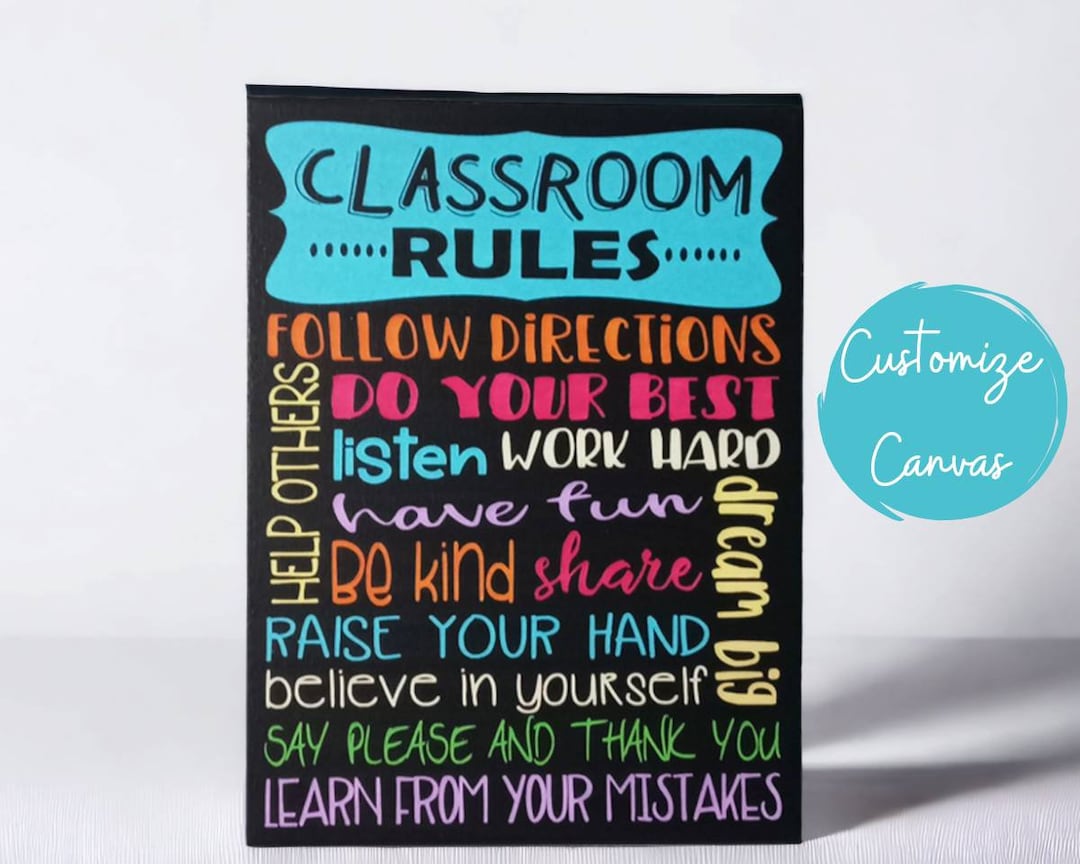 CLASSROOM
RULES
FOLLOW DIRECTIONS
HELP OTHERS
DO YOUR BEST
listen WORK HARD
have fun
dream big
Be kind share
RAISE YOUR HAND
believe in yourself
SAY PLEASE AND THANK YOU
LEARN FROM YOUR MISTAKES
Customize
Canvas